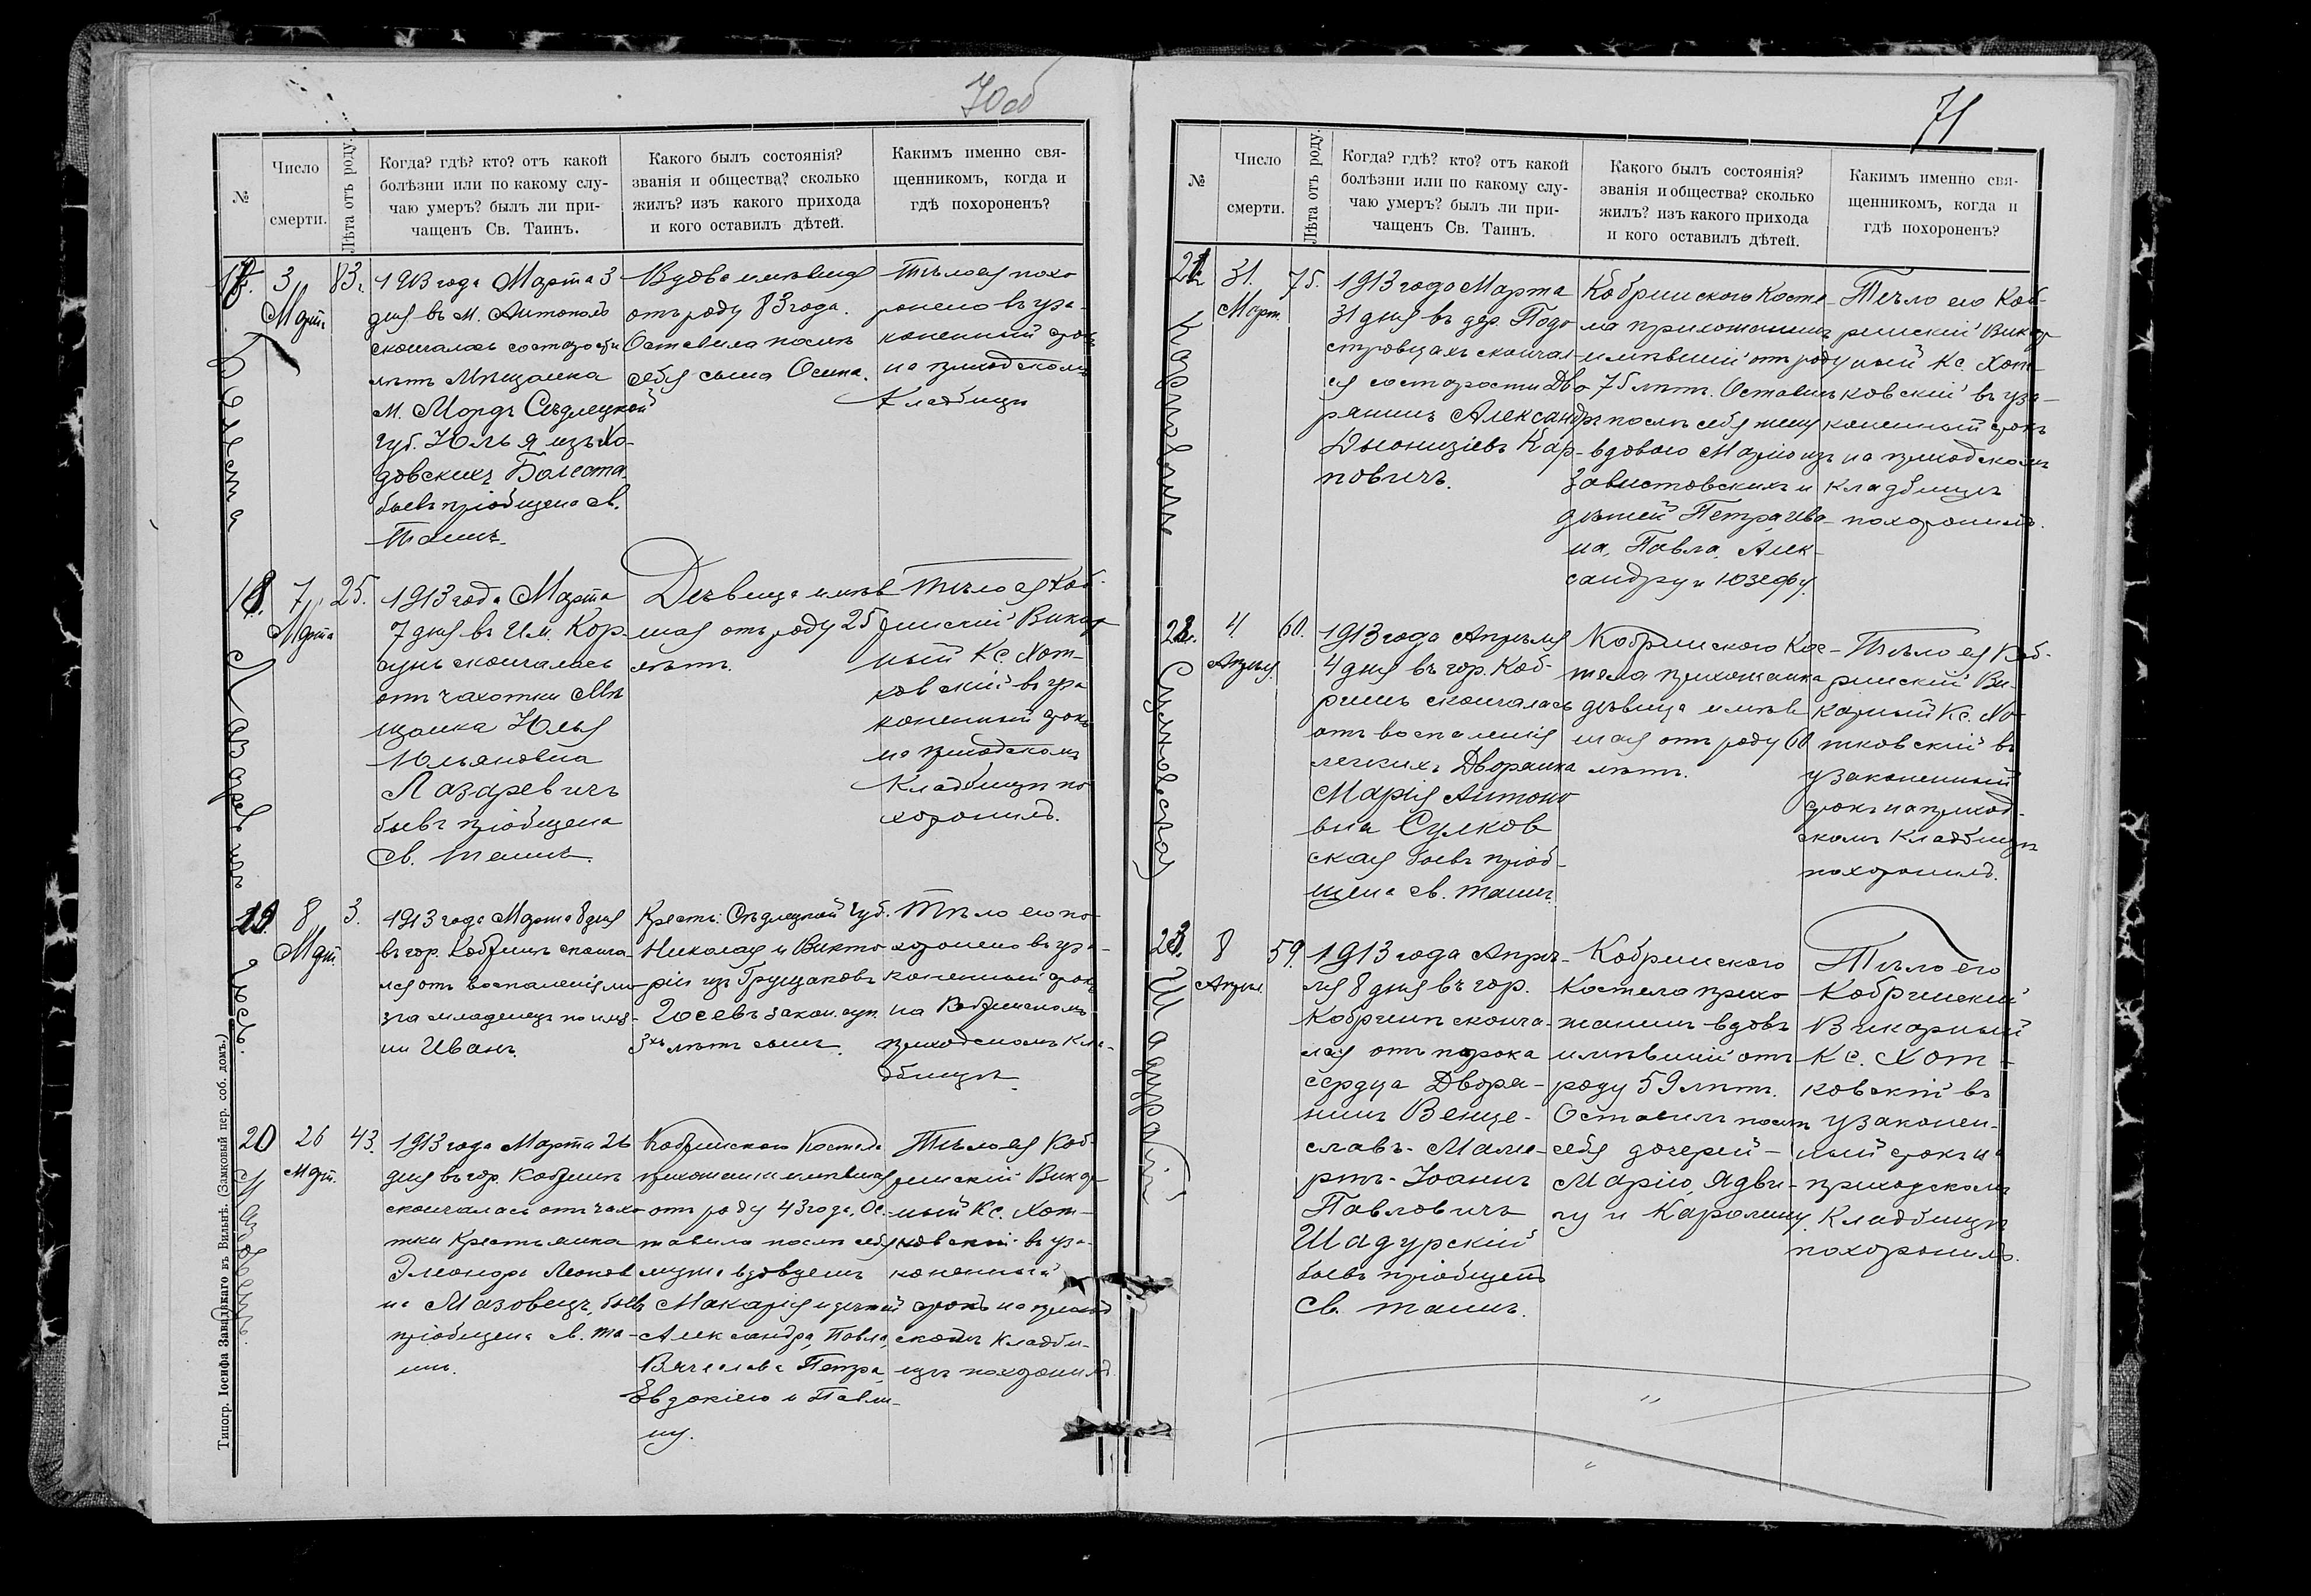 70 об
№
Число
смерти.
Лѣта отъ роду.
Когда? гдѣ? кто? отъ какой
болѣзни или по какому слу-
чаю умеръ? былъ ли при-
чащенъ Св. Таинъ.
Какого былъ состоянія?
званія и общества? сколько
жилъ? изъ какого прихода
и кого оставилъ дѣтей.
Какимъ именно свя-
щенникомъ, когда и
гдѣ похороненъ?
17.
3
Март.
83.
1913 года Марта 3
дня въ м. Антополѣ
скончалась отъ старости
лѣтъ Мѣщанка
м. Морды Сѣдлецкой
губ. Юлья изъ
довскихъ Болеста
бывъ пріобщена Св.
Таинъ.
Вдова имѣвшая
отъ роду 83 года.
Оставила послѣ
себя сына Осипа.
Тѣло ея похо
ронено въ уза-
коненный срокъ
на приходскомъ
Кладбищѣ
Болеста
18.
7
Марта
25.
1913 года Марта
7 дня въ Им. Кор-
скончалась
отъ чахотки Мѣ
щанка Юлья
Юльяновна
Лазаревичъ
бывъ пріобщена
Св. таинъ.
Дѣвица имѣв
шая отъ роду 25
лѣтъ.
Тѣло ея Коб-
ринскій Викар
ный Кс. Хот-
ковскій въ уза
коненный срокъ
на приходскомъ
Кладбищѣ по
хоронилъ.
Лазаревичъ
19.
8
Март.
3.
1913 года Марта 8 дня
въ гор. Кобринѣ сконча-
лся отъ воспаленія мо-
зга младенецъ по име-
ни Иванъ.
Крестъ. Сѣдлецкой губ.
Николая и Викто
ріи изъ Грущаковъ
Гусевъ закон. суп.
3хъ лѣтъ сынъ.
Тѣло его по-
хоронено въ уза-
коненный срокъ
на Кобринскомъ
приходскомъ Кла-
дбищѣ.
Гусевъ.
20
26
Март.
43.
1913 года Марта 26
дня въ гор. Кобринѣ
скончалась отъ чахо-
тки Крестьянка
Элеонора Леонов
на Мазовецъ, бывъ
пріобщена Св. та-
инъ.
Кобринскаго Костела
прихожанка имѣвшая
отъ роду 43 года. Ос-
тавила послѣ себя
мужа вдовцемъ
Макарія и дѣтей
Александра, Павла,
Вячеслава Петра,
Евдокію и Павли-
ну.
Тѣло ея Коб-
ринскій Викар-
ный Кс. Хот-
ковскій въ уза-
коненный
срокъ на приход
скомъ Кладби-
щѣ похоронилъ
Мазовецъ.
Типогр. Іосифа Завадзкаго въ Вильнѣ. (Замковый пер. соб. домъ.)
71
№
Число
смерти.
Лѣта отъ роду.
Когда? гдѣ? кто? отъ какой
болѣзни или по какому слу-
чаю умеръ? былъ ли при-
чащенъ Св. Таинъ.
Какого былъ состоянія?
званія и общества? сколько
жилъ? изъ какого прихода
и кого оставилъ дѣтей.
Какимъ именно свя-
щенникомъ, когда и
гдѣ похороненъ?
21.
31.
Март.
75.
1913 года Марта
31 дня въ дер. Подо
стровцахъ скончал-
ся отъ старости Дво-
рянинъ Александръ
Діонизіевъ Кар-
повичъ.
Кобринскаго Косте-
ла прихожанинъ
имѣвшій отъ роду
75 лѣтъ. Оставилъ
послѣ себя жену
вдовою Марію изъ
Завистовскихъ и
дѣтей Петра, Ива-
на, Павла, Алек-
сандру и Юзефу.
Тѣло его Коб-
ринскій Викар
ный Кс. Хот-
ковскій въ уза-
коненный срокъ
на приходскомъ
Кладбищѣ
похоронилъ.
Карповичъ
22.
4
Апрѣля.
60.
1913 года Апрѣля
4 дня въ гор. Коб-
ринѣ скончалась
отъ воспаленія
легкихъ Дворянка
Марія Антоно
вна Сулков
ская бывъ пріоб-
щена Св. таинъ.
Кобринскаго Кос-
тела прихожанка
дѣвица имѣв
шая отъ роду 60
лѣтъ.
Тѣло ея Коб-
ринскій Ви-
карный Кс. Хо
тковскій въ
узаконенный
срокъ на приход-
скомъ Кладбищѣ
похоронилъ.
Сулковская
23.
8
Апрѣл.
59.
1913 года Апрѣ-
ля 8 дня въ гор.
Кобринѣ сконча-
лся отъ порока
сердца Дворя-
нинъ Венце-
славъ-Маме-
ртъ-Іоаннъ
Павловичъ
Шадурскій
бывъ пріобщенъ
Св. таинъ.
Кобринскаго
Костела прихо
жанинъ вдовъ
имѣвшій отъ
роду 59 лѣтъ.
Оставилъ послѣ
себя дочерей-
Марію, Ядви-
гу и Каролину.
Тѣло его
Кобринскій
Викарный
Кс. Хот-
ковскій въ
узаконен-
ный срокъ на
приходскомъ
Кладбищѣ
похоронилъ.
Шадурскій